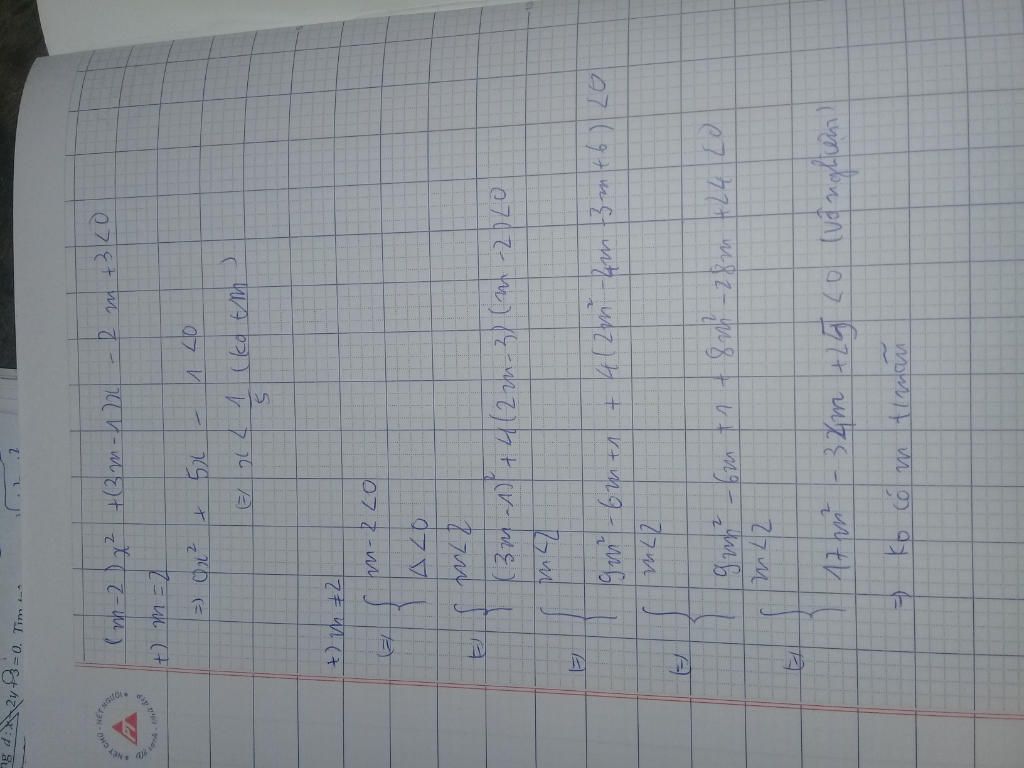 (m-2)x² + (3m-1)x - 2m + 3 < 0
+) m = 2
=> 0x² + 5x - 1 < 0
(=) x < 1/5 (ko t/m)
+) m ≠ 2
(=) { m - 2 < 0
Δ < 0
(=) { m < 2
(3m-1)² + 4(2m-3)(m-2) < 0
(=) { m < 2
9m² - 6m + 1 + 4(2m² - 4m - 3m + 6) < 0
(=) { m < 2
9m² - 6m + 1 + 8m² - 28m + 24 < 0
(=) { m < 2
17m² - 34m + 25 < 0 (vô nghiệm)
=> ko có m t/mãn
NÉT CHỮ NẾT NGƯỜI